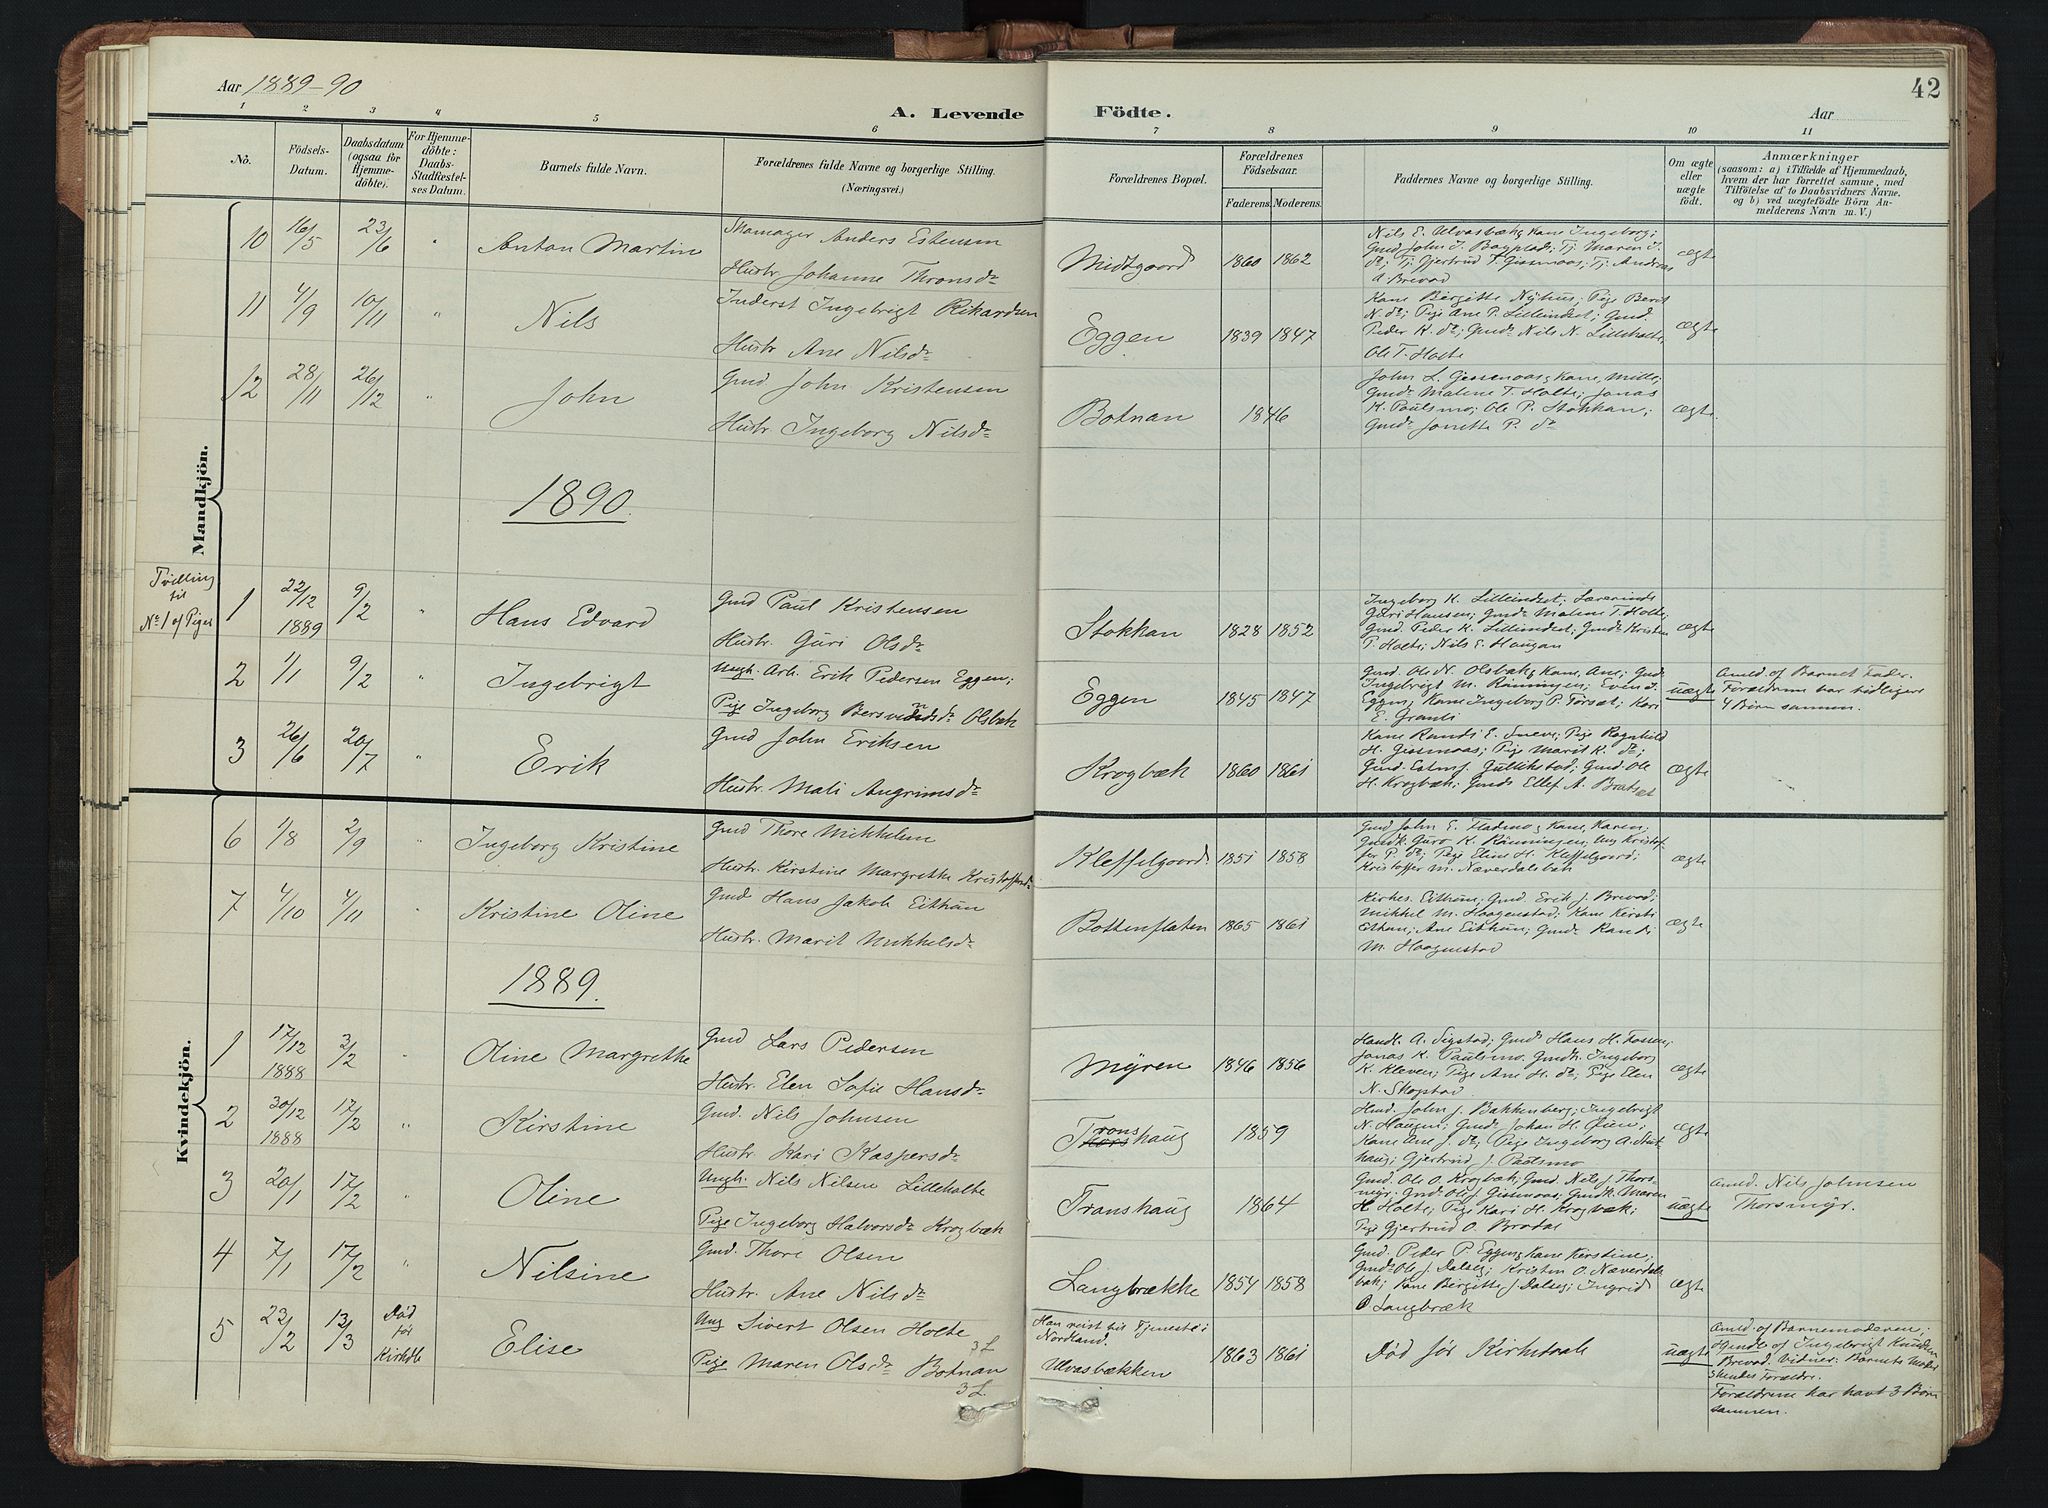 Aar 1889-90
A. Levende Födte.
Aar
42
1 2 3 4 5 6 7 8 9 10 11
No.
Födsels-Datum.
Daabsdatum (ogsaa for Hjemmedöbte).
For Hjemmedöbte: Daabs-Stadfæstelses Datum.
Barnets fulde Navn.
Forældrenes fulde Navne og borgerlige Stilling.
(Næringsvei.)
Forældrenes Bopæl.
Forældrenes Födselsaar.
Faderens. Moderens.
Faddernes Navne og borgerlige Stilling.
Om ægte eller uægte födt.
Anmærkninger
(saasom: a) i Tilfælde af Hjemmedaab,
hvem der har forrettet samme, med
Tilföielse af to Daabsvidners Navne.
og b) ved uægtefödte Börn Anmelderens Navn m. V.)
Mandkjön.
10 16/5 23/6 " Anton Martin
Skomager Anders Estensen
Hustr. Johanne Thronsdr
Midtgaard 1860 1862
Nils E. Ulvasbæk; Kane Ingeborg;
Gmd John J. Bagplads; Tj. Maren J.
dr; Tj. Gjertrud T. Gissenaas; Tj. Andreas
A Brevad
ægte
11 4/9 10/11 " Nils
Inderst Ingebrigt Rikardsen
Hustr. Ane Nilsdr
Eggen 1839 1847
Kane Birgitte Nyhus; Pige Berit
N. dr; Pige Ane P. Lilleindset; Gmd.
Peder K. do; Gmds Nils N. Lilleholte,
Ole T. Holte
ægte
12 28/11 26/12 " John
Gmd. John Kristensen
Hustr. Ingeborg Nilsdr
Botnan 1846
John L. Gissenaas & Kane, Mille;
Gmdr Malene T. Holte; Jonas
K. Paulsmo; Ole P. Stokkan;
Gmdr Jonette P. do
ægte
1890.
Tvilling til No 1 af Piger
1 22/12 1889 9/2 " Hans Edvard
Gmd Paul Kristensen
Hustr. Guri Olsdr
Stokkan 1828 1852
Ingeborg K. Lilleindset; Lærerinde
Guri Hansen; Gmdr Malene T. Holte;
Gmd. Peder K. Lilleindset; Gmds Kristen
T. Holte; Nils E. Haugan
ægte
2 1/1 9/2 " Ingebrigt
Ungk. Arb. Erik Pedersen Eggen;
Pige Ingeborg Bersvendsdr Olsbæk
Eggen 1845 1847
Gmd. Ole N. Olsbæk & Kane, Ane; Gmd
Ingebrigt M. Rönningen; Even J.
Eggen; Kane Ingeborg P. Forsæt; Kari
E. Granli
uægte
Anmd. af Barnet Fader.
Forældrene har tidligere
4 Börn sammen.
3 26/6 20/7 " Erik
Gmd John Eriksen
Hustr. Mali Angrimsdr
Krogbæk 1860 1861
Kane Randi E. Sneve; Pige Ragnhild
H. Gissenaas; Pige Marit K. do;
Gmd. Gulliksstad; Gmd. Ole
H. Krogbæk; Gmds Ellef A. Bratset
ægte
Kvindekjön.
6 1/8 2/9 " Ingeborg Kristine
Gmd Thore Mikkelsen
Hustr. Kirstine Margrethe Kristoffersdr
Kleffelgaard 1851 1858
Gmd John E. Fladmo & Kane, Karen;
Gmdk. Guro K. Rönningen; Ung Kristoffer
P. do; Pige Eline H. Kleffelgaard;
Kristoffer M. Næverdalsbæk
ægte
7 4/10 4/11 " Kristine Oline
Gmd Hans Jakob Eithun
Hustr. Marit Mikkelsdr
Bottenflaten 1865 1861
Kirkes. Eithun; Gmd. Erik J. Brevad;
Mikkel M. Haagenstad; Kane Kersti
Eithun; Ane Eithun; Gmdr Randi
M. Haagenstad
ægte
1889.
1 17/12 1888 3/2 " Oline Margrethe
Gmd Lars Pedersen
Hustr. Elen Sofie Hansdr
Myren 1846 1856
Handl. A. Sigstad; Gmds Hans H. Fossen;
Jonas K. Paulsmo; Gmdk. Ingeborg
K. Kleven; Pige Ane H. do; Pige Elen
N. Skogstad
ægte
2 30/12 1888 17/2 " Kirstine
Gmd. Nils Johnsen
Hustr. Kari Kaspersdr
Tronshaug 1859
Hmd. John J. Bakkenberg; Ingebrigt
N. Haugen; Gmds Johan H. Öien;
Kane Ane J. do; Pige Ingeborg A.
haug; Gjertrud J. Paalsmo
ægte
3 20/1 17/2 " Oline
Ungk. Nils Nilsen Lilleholte
Pige Ingeborg Halvorsdr Krogbæk
Transhaug 1864
Gmd. Ole O. Krogbæk; Gmd. Nils J. Thorsmyr;
Gmds Ole J. Gissenaas; Gmdk. Maren
H. Holte; Pige Kari H. Krogbæk;
Pige Gjertrud O. Brodal
uægte
Anmd. Nils Johnsen
Thorsmyr.
4 7/1 17/2 " Nilsine
Gmd. Thore Olsen
Hustr. Ane Nilsdr
Langbrække 1854 1858
Gmd. Peder P. Eggen & Kane Kerstine;
Gmds Ole J. Dalseg; Kristen O. Næverdalsbæk;
Kane Birgitte J. Dalseg; Ingrid
O Langbræk
ægte
5 23/2 13/3 Död för Kirkdb Elise
Ung Sivert Olsen Holte 3 L
Pige Maren Olsdr Botnan 3 L.
Han reist til Tjeneste i
Nordland.
Ulvasbækken 1863 1861
Död för Kirkedaab
uægte
Anmd. af Barnemoderen;
Hjemdb af Ingebrigt Knudsen
Brevad. Vidner: Barnets Moder
& hendes Forældre.
Forældrene har havt 3 Börn
sammen.